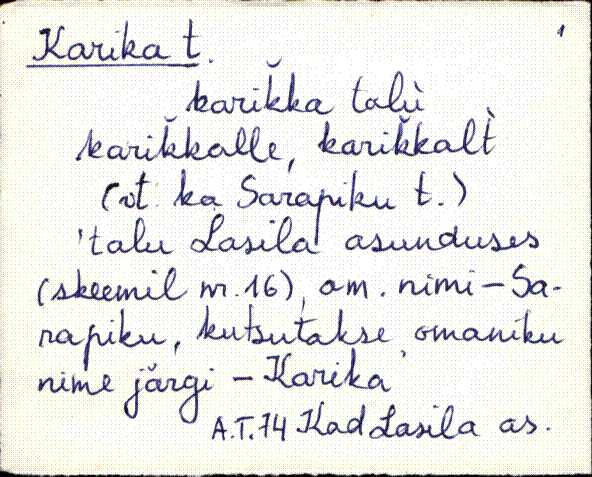 Karika t. 1
karik̆ka talù
karik̆kalle, karik̆kalt̀
(vt. ka Sarapiku t.)
'talu Lasila asunduses
(skeemil nr. 16), om. nimi – Sa-
rapiku, kutsutakse omaniku
nime järgi – Karika
A.T. 74 Kad Lasila as.